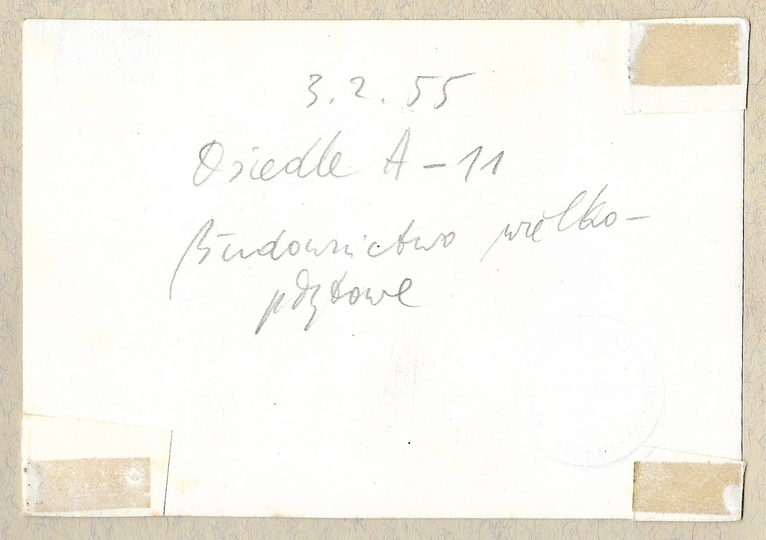 3.2.55
Osiedle A-11
Budownictwo wielko-
płytowe